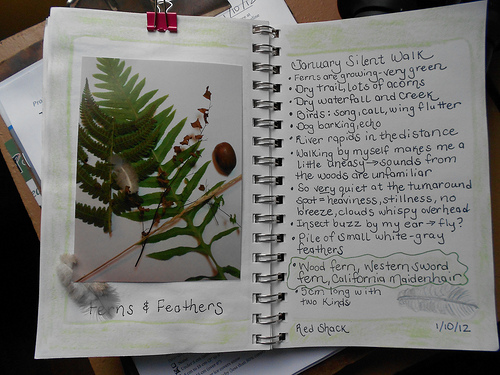 1/10/12
Pro
Ferns & Feathers
January Silent Walk
• Ferns are growing-very green
• Dry trail, lots of acorns
• Dry waterfall and creek
• Birds: song, call, wing flutter
• Dog barking, echo
River rapids in the distance
• Walking by myself makes me a
little uneasy → sounds from
the woods are unfamiliar
• So very quiet at the turnaround
spot = heaviness, stillness, no
breeze, clouds whispy overhead
• Insect buzz by my ear → fly?
• Pile of small white-gray
feathers
• Wood fern, Western Sword
fern, California Maidenhair
• 5cm long with
two kinds
Red Shack
1/10/12